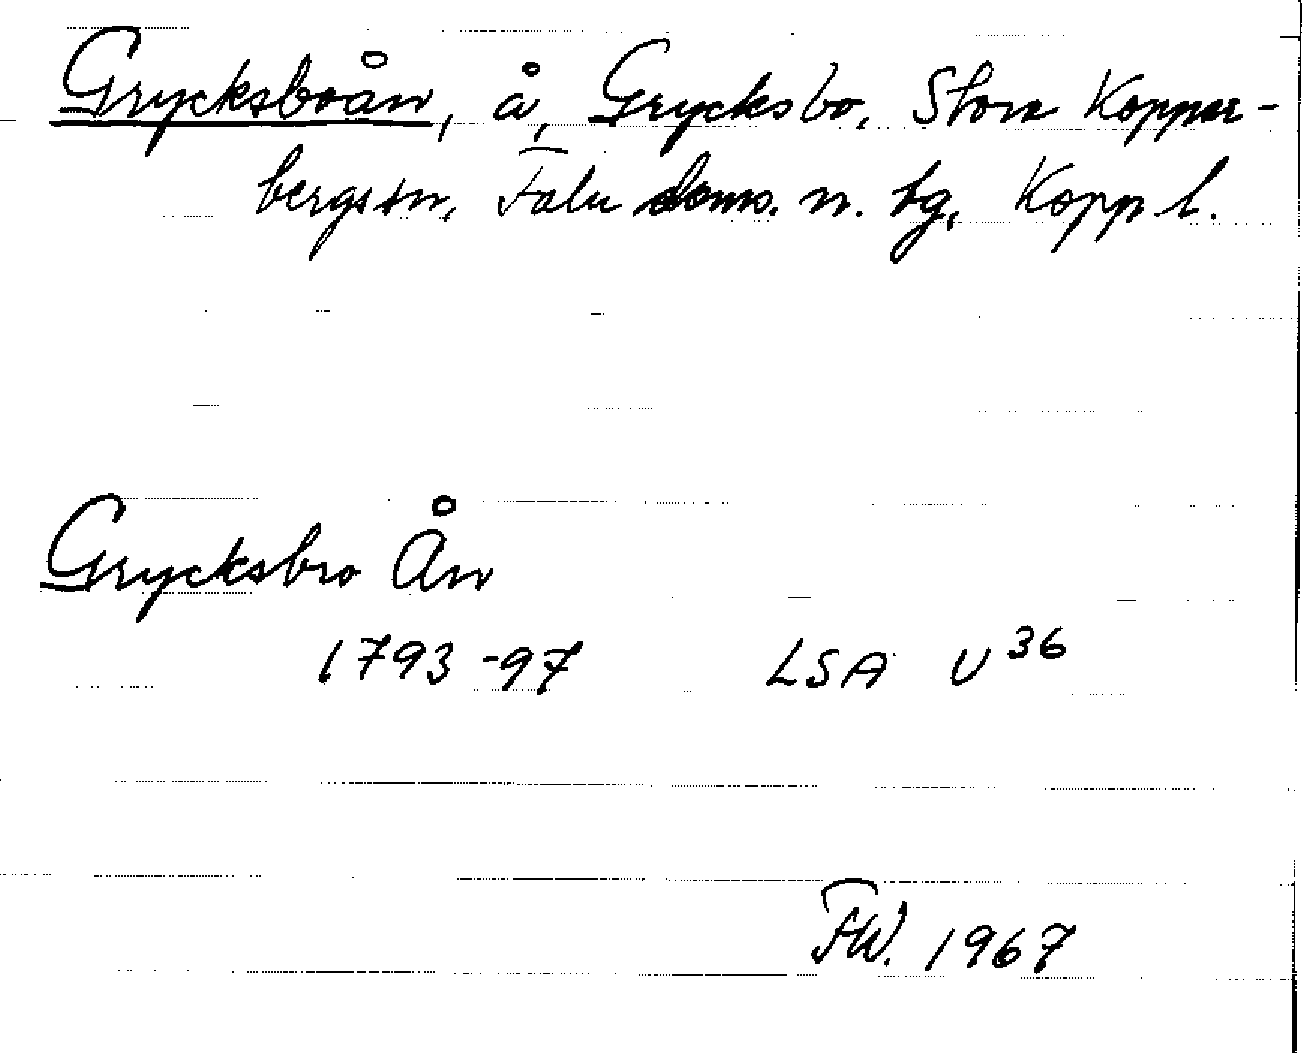 Grycksboån, å, Grycksbo, Stora Koppar-
bergs sn, Falu doms. n. tg, Kopp l.
Grycksbro Ån
1793-97 LSA U 36
FW. 1967